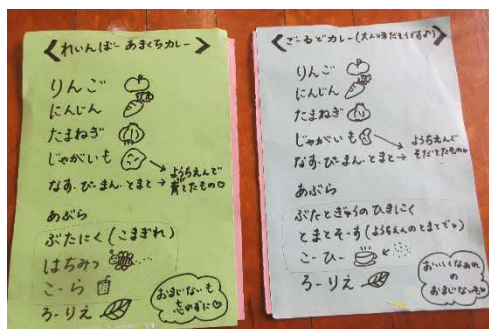 <れいんぼー あまくちカレー>
りんご
にんじん
たまねぎ
じゃがいも
なす・ぴーまん・とまと→
ようちえんで
育てたもの♡
あぶら
ぶたにく(こまぎれ)
はちみつ
こーら
ろーりえ
おまじないも
忘れずに♡
<ごーるどカレー(大人の味だそうですよ)>
りんご
にんじん
たまねぎ
じゃがいも
なす・ぴーまん・とまと→
ようちえんで
そだてたもの
あぶら
ぶたとぎゅうのひきにく
とまとそーす(ようちえんのとまとでっ)
こーひー
ろーりえ
おいしくなあれ
の
おまじないも